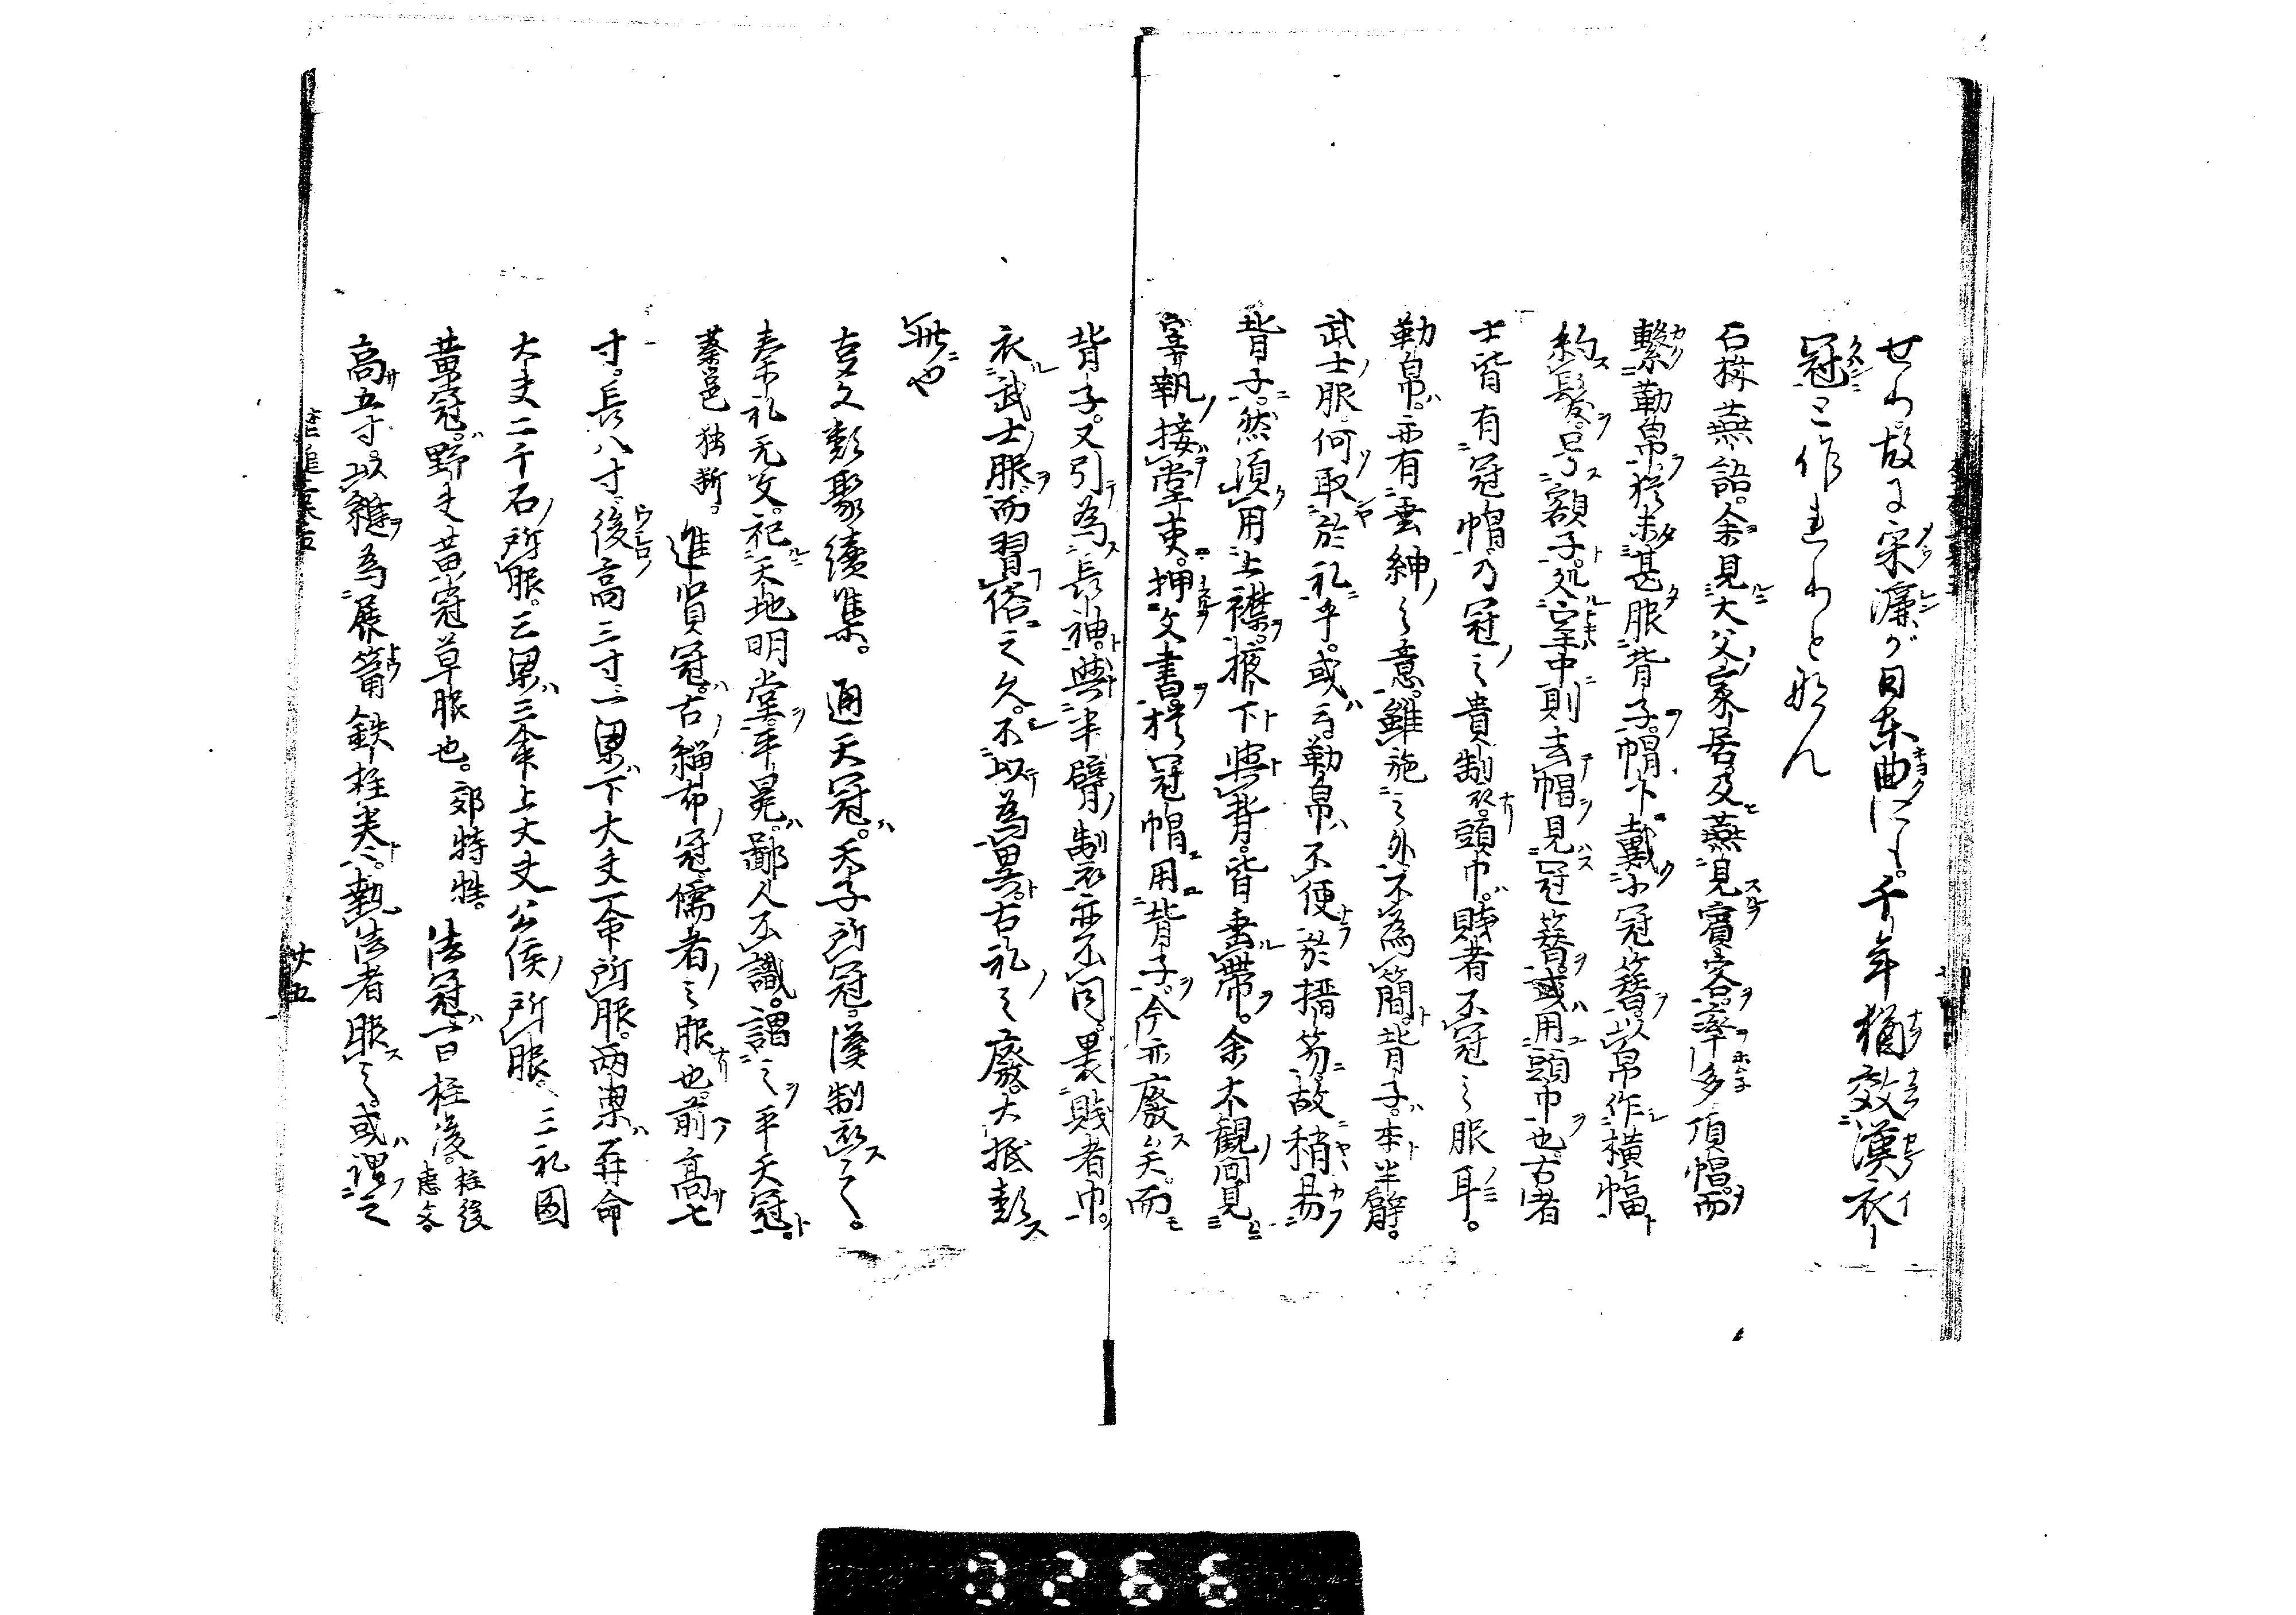 せり。故に宋濂が日東曲にも。千年猶效漢衣
冠と作れりと なん
石林燕語。余見大父家居及燕見賓客。率多頂帽。而
繋勒帛。猶未甚服背子。帽下戴小冠簪。以帛作横幅
約髪。号額子。処室中則去帽見冠簪。或用頭巾也。古者
士皆有冠。帽乃冠之貴制。頭巾。賤者不冠之服耳。
勒帛。亦有垂紳之意。雖施之外不為簡。背子。本半臂。
武士服。何取於礼乎。或云勒帛不便於搢笏。故稍易
背子。然須用上襟。掖下與背。皆垂帯。余 観 見
宰執接堂吏。押文書。猶冠帽用背子。今亦廃矣。而
背子。又引為長袖。與半臂制亦不同。裹賤者巾。
衣武士服而習俗之久。不以為異。古礼之廃。大抵類
此也
古文類聚續集。通天冠。天子所冠。漢制 之。
秦礼无文。祀天地明堂。平冕。鄙人不識。謂之平天冠
蔡邕独断。進賢冠。古緇布冠儒者之服也。前高七
寸。長八寸。後高三寸一梁。下大夫一命所服。両梁。再命
大夫二千石所服。三梁。三命上大夫公侯所服。三礼図
黄冠。野夫黄冠草服也。郊特牲。法冠。一曰柱後。柱後恵文。
高五寸。以纚為展筩鉄柱巻。執法者服之。或謂之
廿五
0266